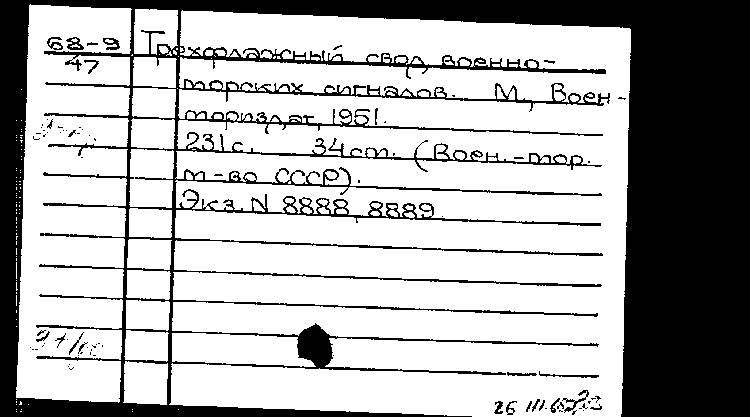 68-9 Трехфлажный свод военно-
47
морских сигналов. М., Воен-
мориздат, 1951.
231 с. 34 см. (Воен.-мор.
м-во СССР).
Экз. N 8888, 8889
26 III 65